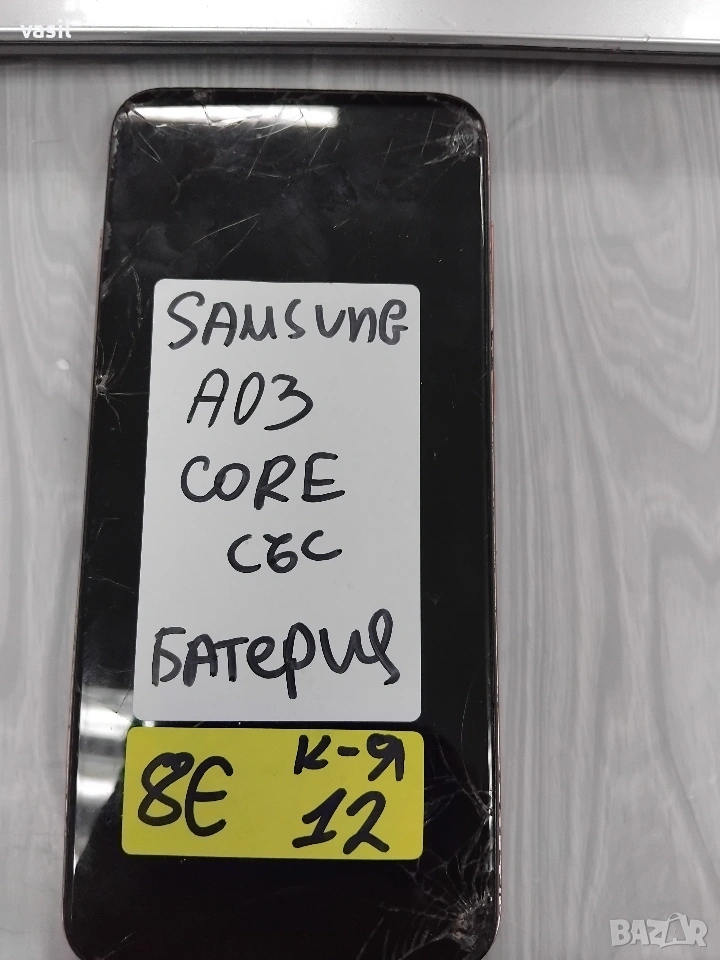 vasit
SAMSUNG
A03
CORE
със
БАТЕРИЯ
8E К-Я
12
BAZAR